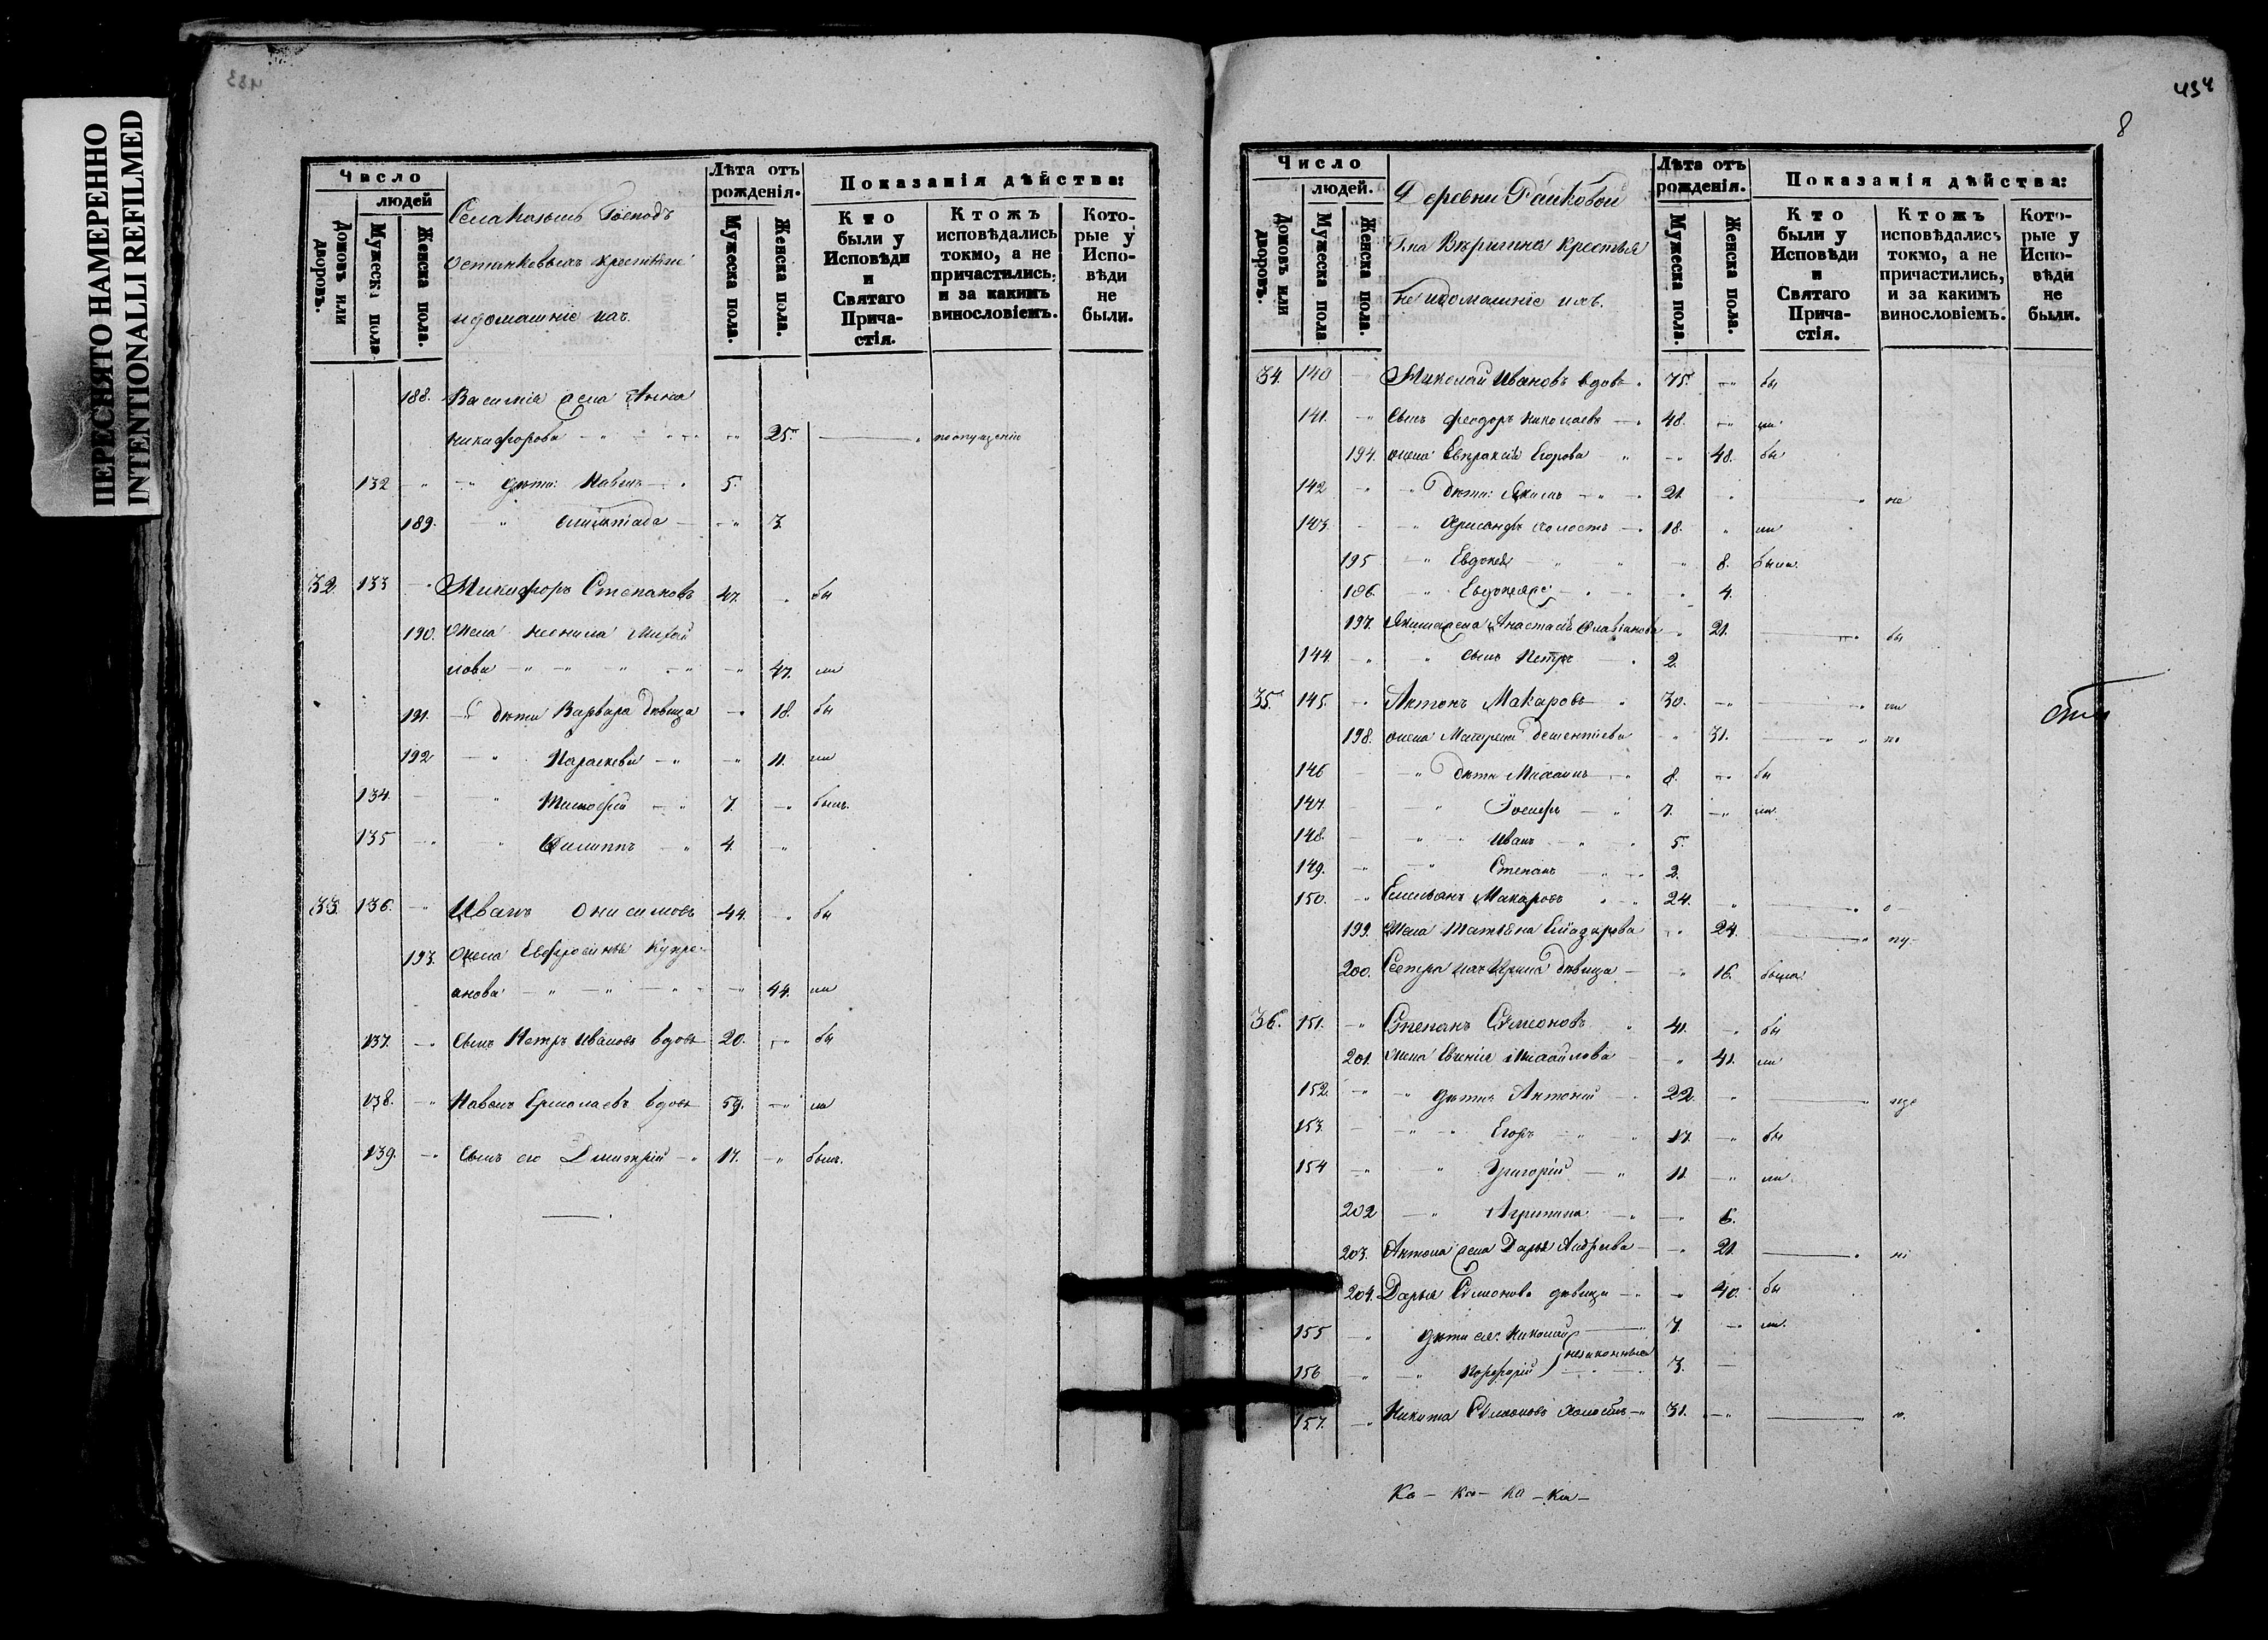 ПЕРЕСНЯТО НАМЕРЕННО
INTENTIONALLI REFILMED
433
Число
людей
Домовъ или дворовъ.
Мужеска пола
Женска пола.
Господъ
крестьяне
и домашніе ихъ.
Лѣта отъ рожденія.
Мужеска пола.
Женска пола.
Показанія дѣйства:
Кто были у Исповѣди и Святаго Причастія.
Ктожъ исповѣдались токмо, а не причастились, и за какимъ винословіемъ.
Которые у Исповѣди не были.
188. Василія жена Анна
Никифорова 25. по опущенію
132 дѣти: Павелъ 5.
189. 3.
32. 133 Никифоръ Степановъ 47. бы
190. Жена
лова 47. ли
191. дѣти Варвара дѣвица 18. бы
192 Параскева 11. ли
134. Тимофей 7. былъ.
135 Филиппъ 4.
33. 136. Иванъ Онисимовъ 44. бы
193. Жена Евфросинья Купре-
анова 44. ли
137. Сынъ Петръ Ивановъ вдовъ 20. бы
138. Павелъ Ермолаевъ вдовъ 59. ли
139. Сынъ его Димитрій 17. былъ.
434
8
Число
людей.
Домовъ или дворовъ.
Мужеска пола
Женска пола.
Деревни Райковой
Г-на Вѣригина крестья
не и домашніе ихъ.
Лѣта отъ рожденія.
Мужеска пола.
Женска пола.
Показанія дѣйства:
Кто были у Исповѣди и Святаго Причастія.
Ктожъ исповѣдались токмо, а не причастились, и за какимъ винословіемъ.
Которые у Исповѣди не были.
34. 140 Николай Ивановъ вдовъ 75. бы
141. Сынъ Феодоръ Николаевъ 48. ли
194. жена Евпраксія Егорова 48. бы
142 дѣти: Якимъ 21. не
143. холостъ 18. ли
195 Евдокея 8. была.
196 4.
197. Якима жена Анастасія 21. бы
144. сынъ Петръ 2.
35. 145. Антонъ Макаровъ 30. ли
198. жена Дементіева 31.
146 дѣти Михаилъ 8. бы
147. Іосифъ 7. ли
148. Иванъ 5.
149. Степанъ 2.
150. Емельянъ Макаровъ 24. о
199. Жена Татіана 24. пу
200. Сестра ихъ Ирина дѣвица 16. была.
36. 151. Степанъ Симеоновъ 41. бы
201. Жена Михайлова 41. ли
152. дѣти Антоній 22.
153. Егоръ 17. бы
154 Григорій 11. ли
202 Агрипина 6.
203. Антона жена Дарья Андреева 21.
204. Дарья Симеонова дѣвица 40. бы
155 дѣти ея: Николай 7. ли.
незаконные
156 Порфирій 3.
157. Никита Симеоновъ холостъ 31.
Ка – ка – ка – ка –